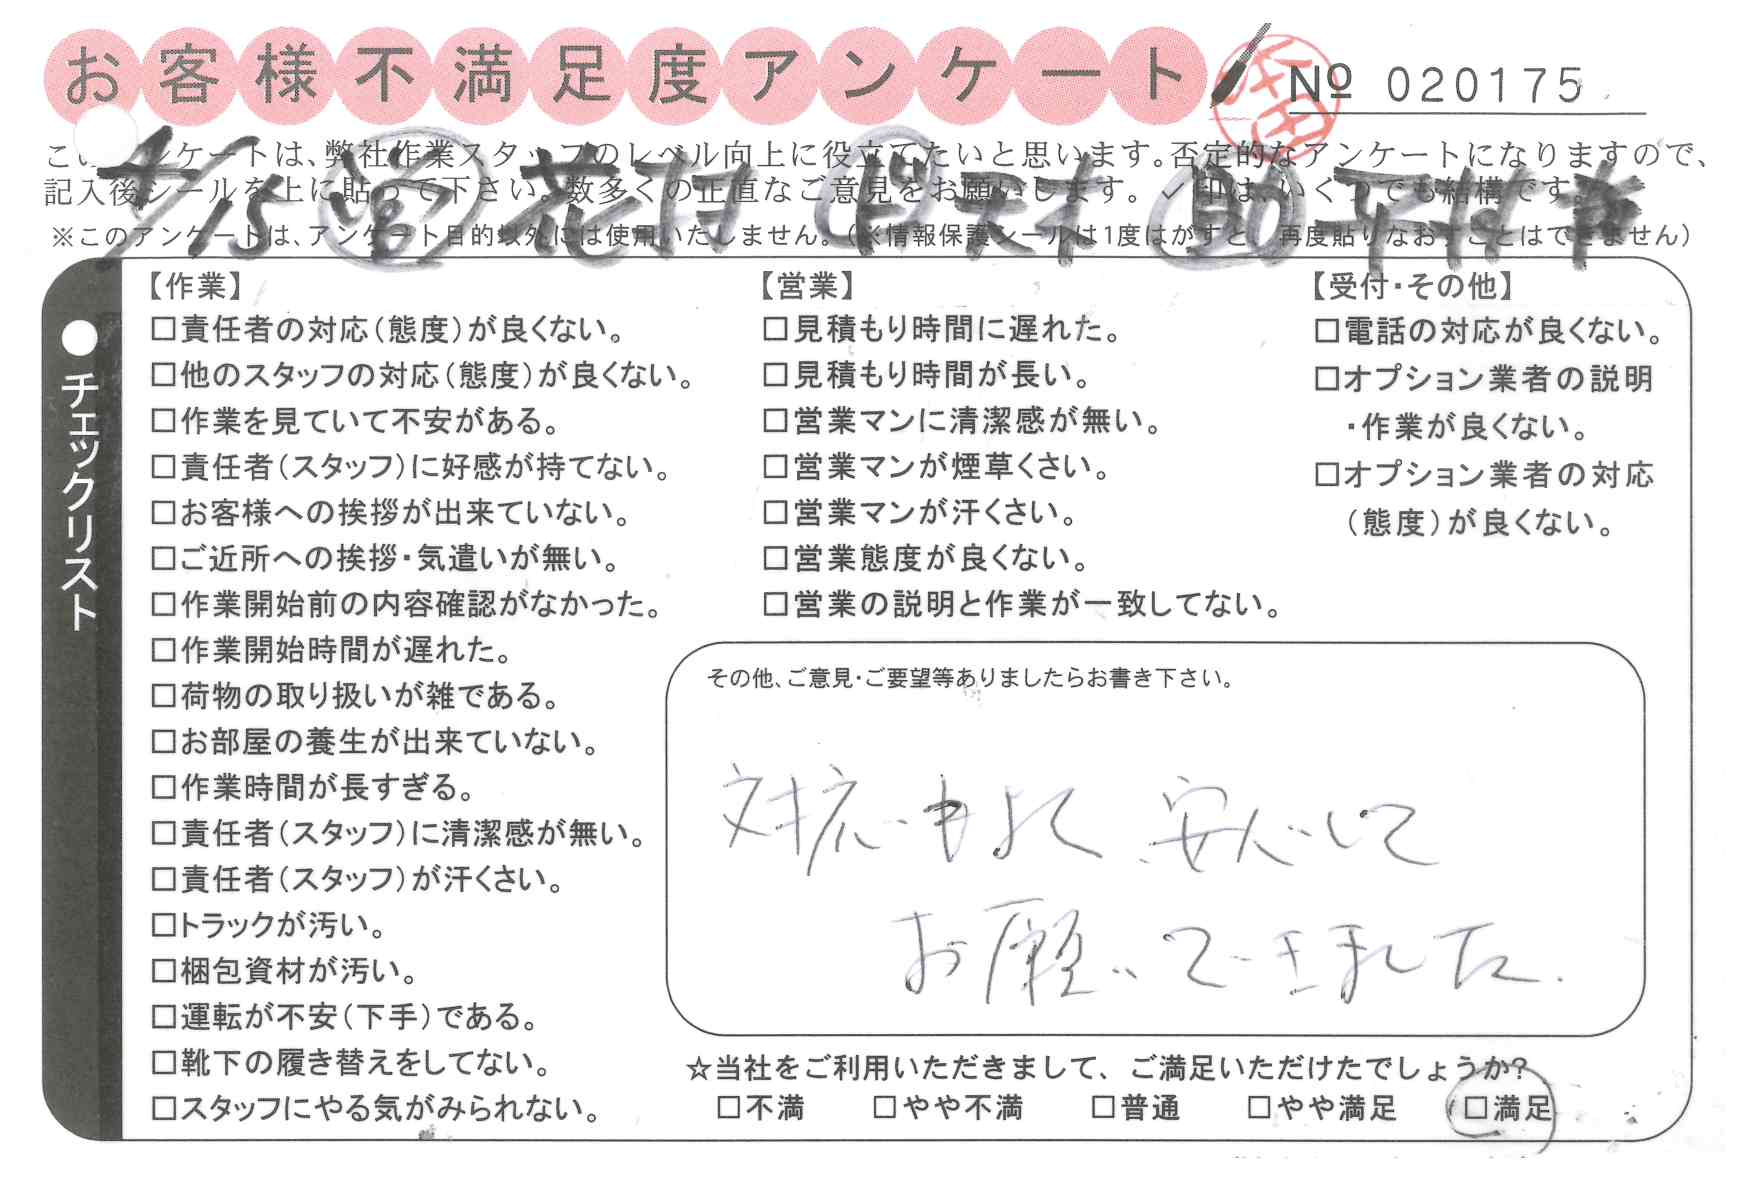 お客様不満足度アンケート
№ 020175
このアンケートは、弊社作業スタッフのレベル向上に役立てたいと思います。否定的なアンケートになりますので、
記入後シールを上に貼って下さい。数多くの正直なご意見をお願いします。✓印は、いくつでも結構です。
※このアンケートは、アンケート目的以外には使用いたしません。(※情報保護シールは1度はがすと、再度貼りなおすことはできません)
チェックリスト
【作業】
□責任者の対応(態度)が良くない。
□他のスタッフの対応(態度)が良くない。
□作業を見ていて不安がある。
□責任者(スタッフ)に好感が持てない。
□お客様への挨拶が出来ていない。
□ご近所への挨拶・気遣いが無い。
□作業開始前の内容確認がなかった。
□作業開始時間が遅れた。
□荷物の取り扱いが雑である。
□お部屋の養生が出来ていない。
□作業時間が長すぎる。
□責任者(スタッフ)に清潔感が無い。
□責任者(スタッフ)が汗くさい。
□トラックが汚い。
□梱包資材が汚い。
□運転が不安(下手)である。
□靴下の履き替えをしてない。
□スタッフにやる気がみられない。
【営業】
□見積もり時間に遅れた。
□見積もり時間が長い。
□営業マンに清潔感が無い。
□営業マンが煙草くさい。
□営業マンが汗くさい。
□営業態度が良くない。
□営業の説明と作業が一致してない。
【受付・その他】
□電話の対応が良くない。
□オプション業者の説明
・作業が良くない。
□オプション業者の対応
(態度)が良くない。
その他、ご意見・ご要望等ありましたらお書き下さい。
対応もよく、安心して
お願いできました.
☆当社をご利用いただきまして、ご満足いただけたでしょうか?
□不満 □やや不満 □普通 □やや満足 □満足